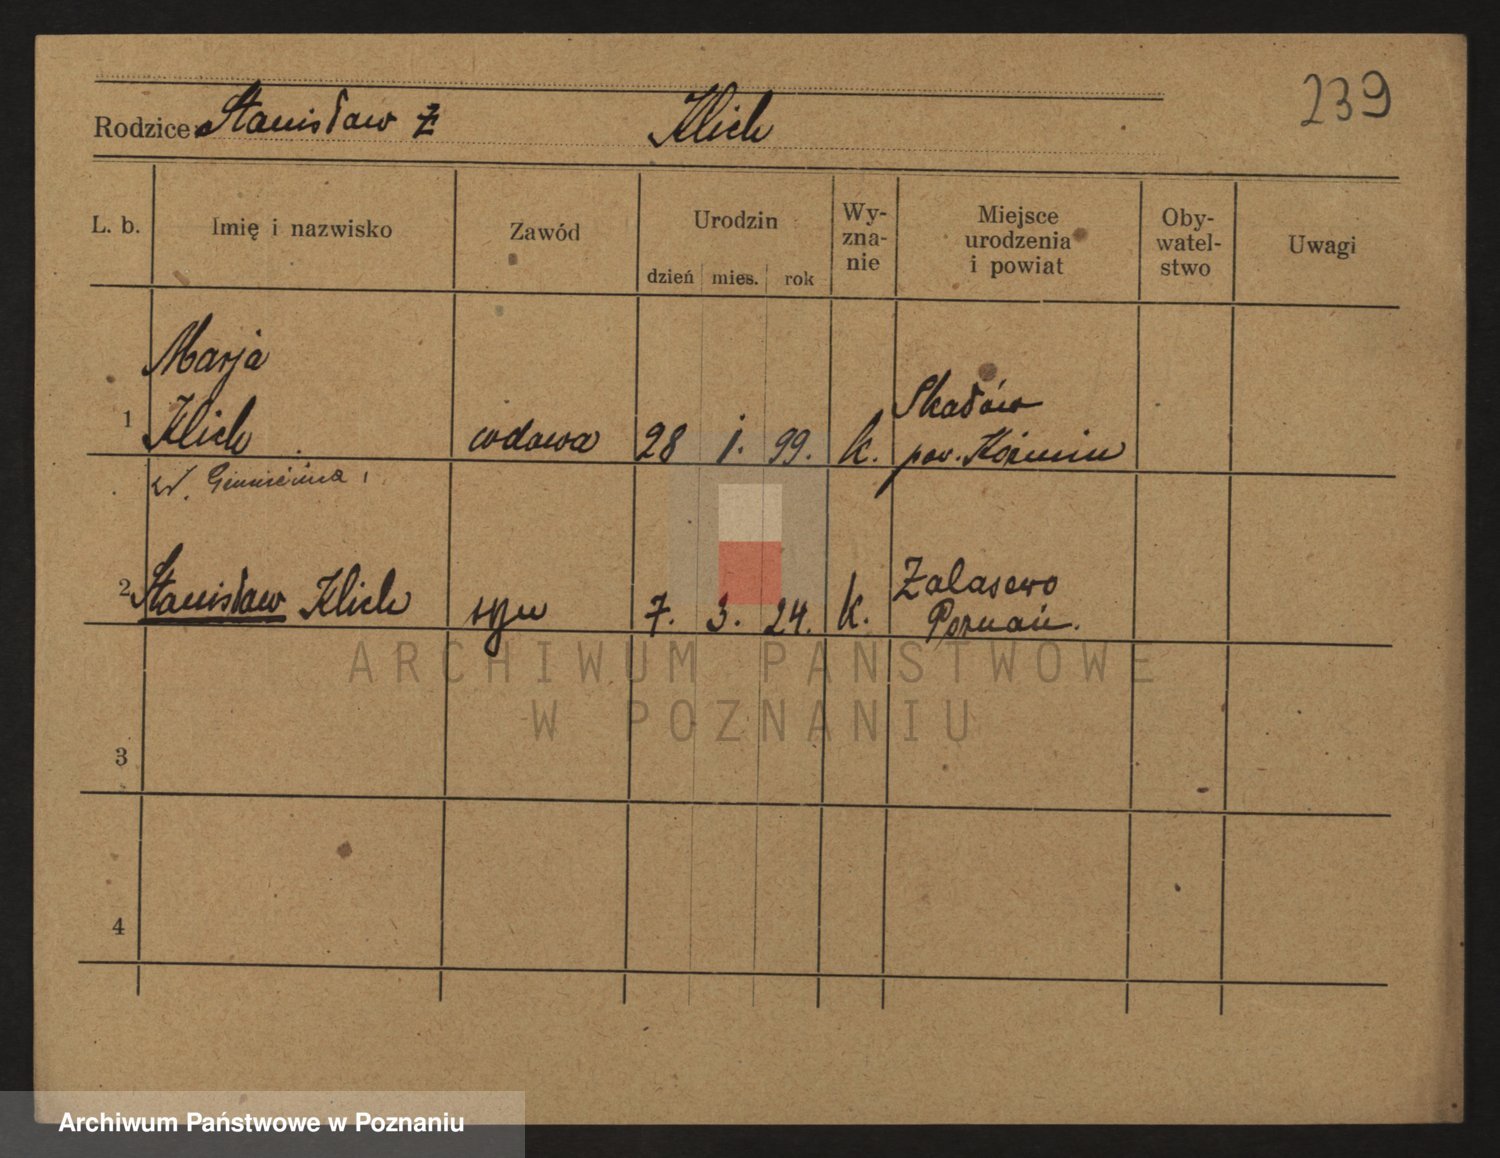 239
Rodzice Stanisław Ż Klich
L. b. Imię i nazwisko Zawód Urodzin Wy- Miejsce Oby- Uwagi
zna- urodzenia watel-
dzień mies. rok nie i powiat stwo
Marja
1 Klich wdowa 28 1. 99. k. Skałów
pow. Koźmin
2 Stanisław Klich syn 7. 3. 24. k. Zalasewo
Poznań.
3
4
ARCHIWUM PAŃSTWOWE
W POZNANIU
Archiwum Państwowe w Poznaniu